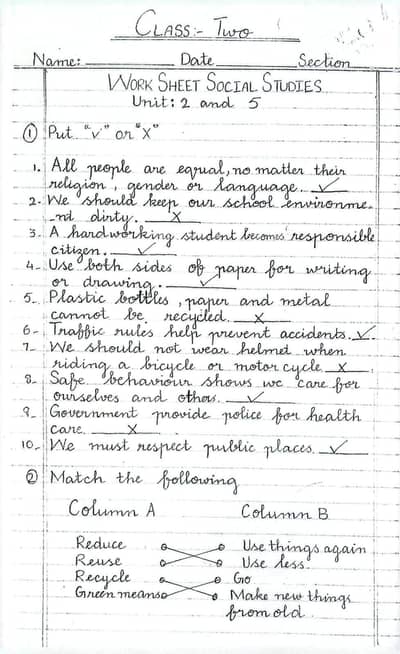 CLASS:- Two
Name: Date Section
WORK SHEET SOCIAL STUDIES
Unit: 2 and 5
① Put "v" or "x"
1. All people are equal, no matter their
religion, gender or language. ✓
2- We should keep our school environme-
-nd dirty. X
3. A hardworking student becomes responsible
citizen. ✓
4- Use both sides of paper for writing
or drawing. ✓
5- Plastic bottles, paper and metal
cannot be recycled. X
6- Traffic rules help prevent accidents. ✓.
7- We should not wear helmet when
riding a bicycle or motor cycle. X
8- Safe behaviour shows we care for
ourselves and others. ✓
9- Government provide police for health
care. X
10- We must respect public places. ✓
② Match the following
Column A Column B
Reduce Use things again
Reuse Use less.
Recycle Go
Green means Make new things
from old.